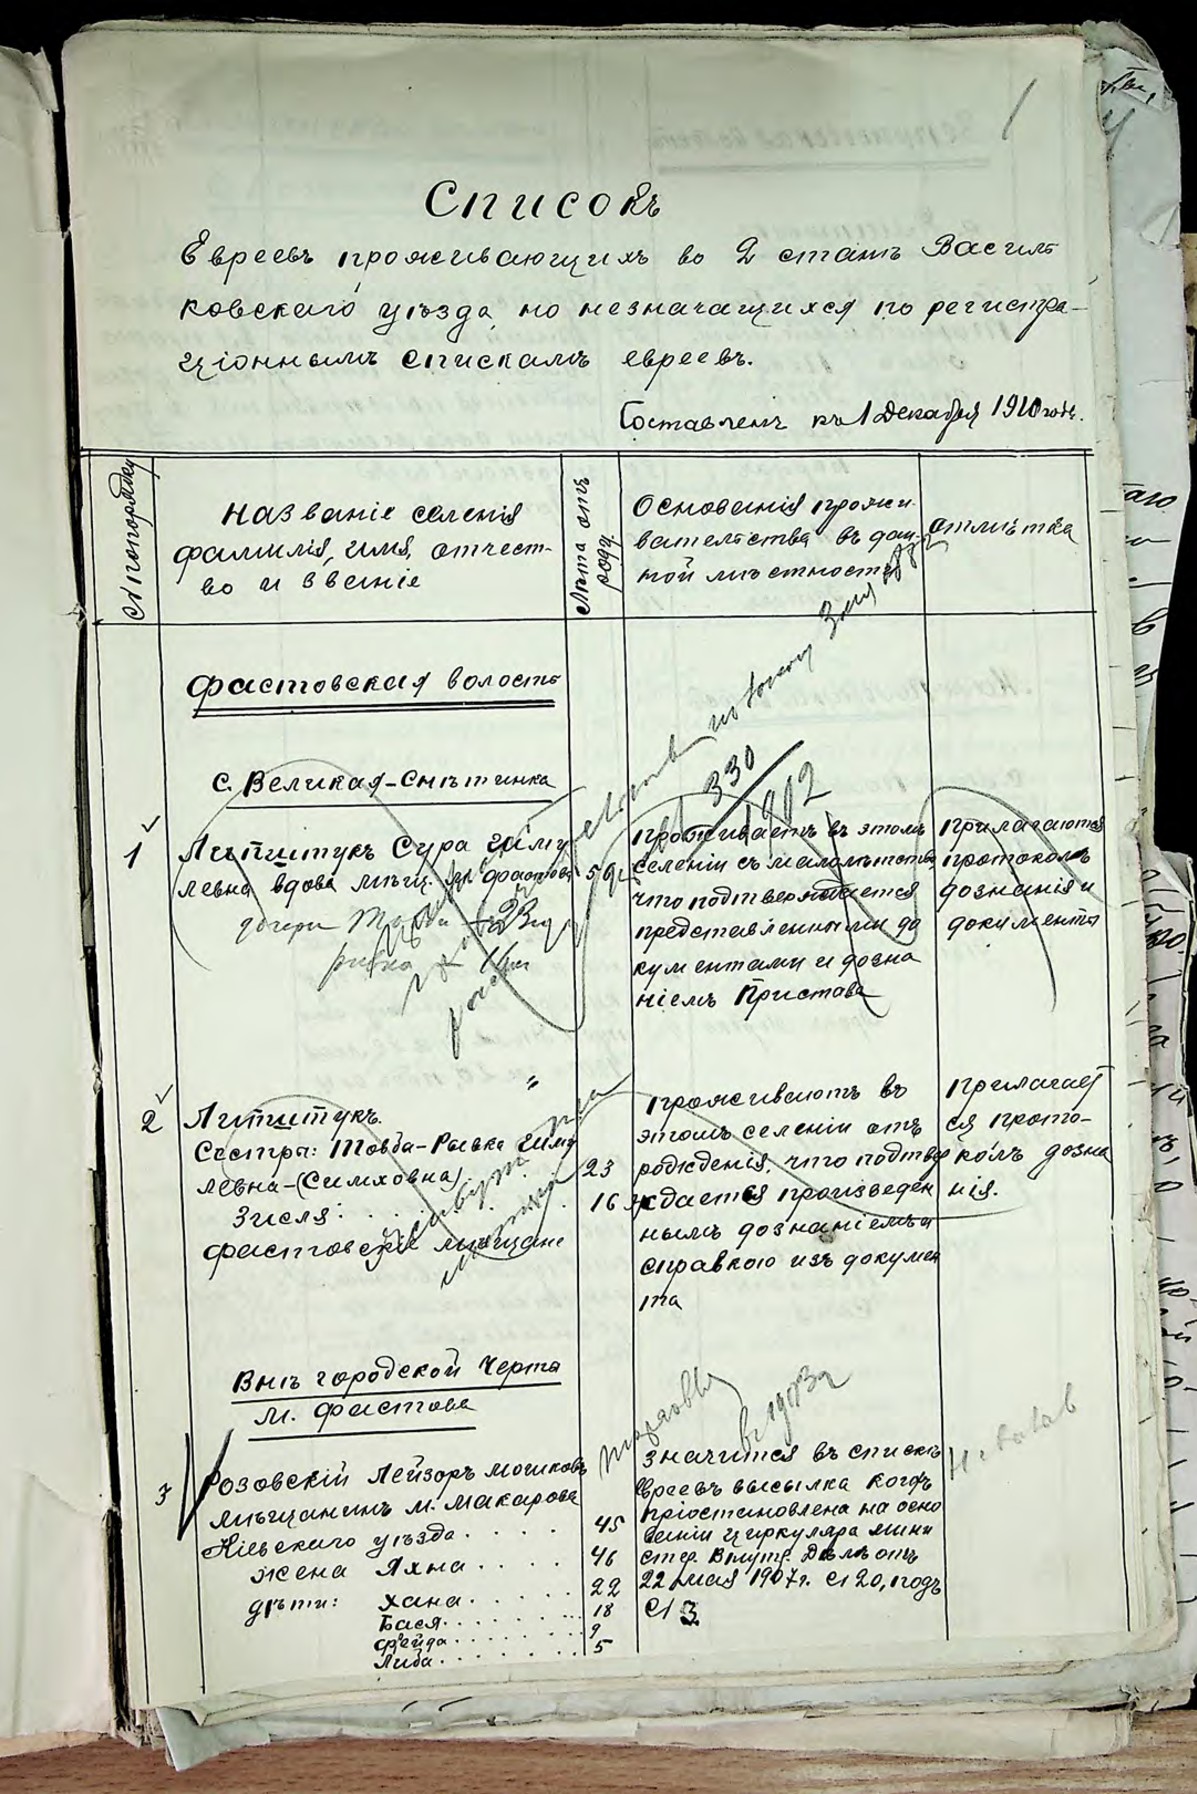 1
Списокъ
Евреевъ проживающихъ во 2 станѣ Василь
ковскаго уѣзда, но незначащихся по регистра-
ціоннымъ спискамъ евреевъ.
Составленъ къ 1 Декабря 1910 года.
№ по порядку
Названіе селенія
фамилія, имя, отчест-
во и званіе
Лѣта отъ
роду
Основанія прожи
вательства въ дан
ной мѣстности
отмѣтка
Фастовская волость
с. Великая-Снѣтинка
330
1902
1
Липитукъ Сура Шму
левна вдова мѣщ. Фастова
дочери
56
проживаетъ въ этомъ
селеніи съ малолѣтства,
что подтверждается
представленными до
кументами и дозна
ніемъ Пристава
прилагаются
протоколъ
дознанія и
документы
2
Липитукъ "
Сестры: Товба-Рывка Шму
левна-(Симховна)
23
Зисля
16
фастовскіе мѣщане
проживаютъ во
этомъ селеніи отъ
рожденія, что подтвер
ждается произведен
нымъ дознаніемъ и
справкою изъ докумен
та
прилагает
ся прото-
колъ дозна
нія.
Внѣ городской Черты
м. Фастова
3
Розовскій Лейзоръ Мошковъ
мѣщанинъ м. Макарова
Кіевскаго уѣзда . . . . 45
жена Яхна . . . . 46
дѣти: Хана . . . . 22
Бася . . . . 18
Фрейда . . . . 9
Либа . . . . 5
значится въ спискѣ
Евреевъ высылка коихъ
пріостановлена на осно
ваніи циркуляра мини
стер. Внутр. Дѣлъ отъ
22 мая 1907 г. № 20, подъ
№ 3